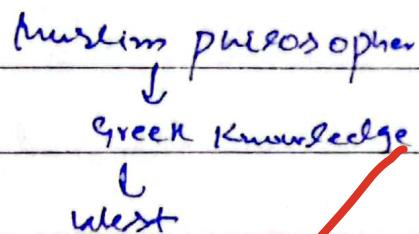 Muslim philosopher
↓
Greek Knowledge
↓
West